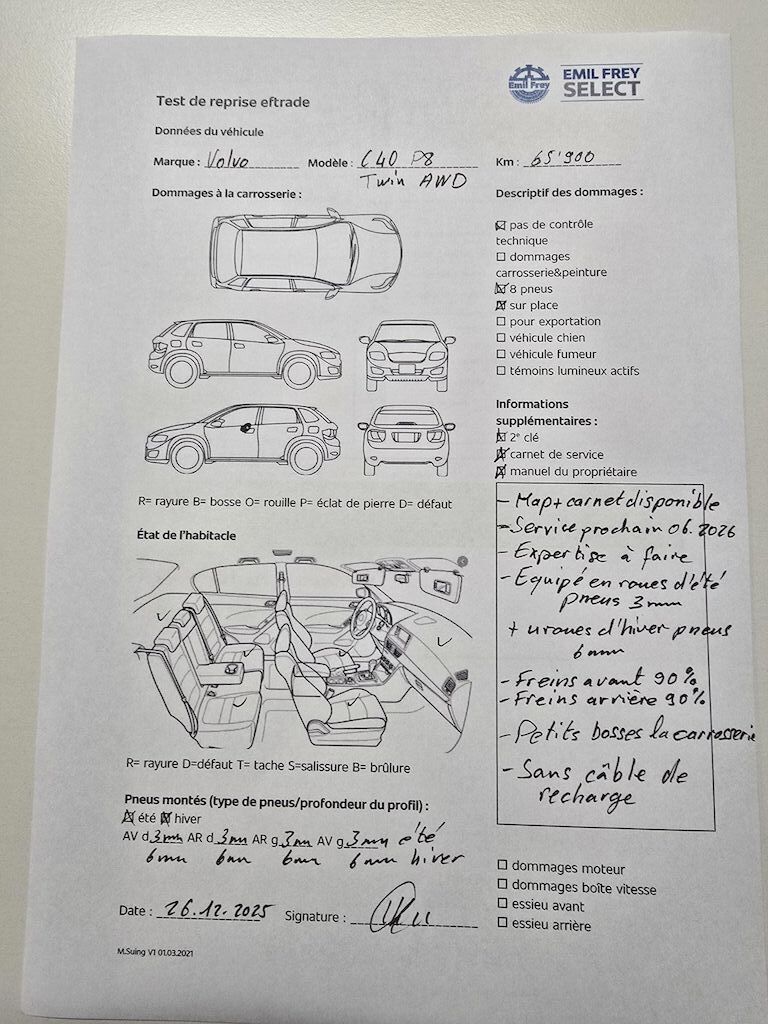 Emil Frey
EMIL FREY
SELECT
Test de reprise eftrade
Données du véhicule
Marque : Volvo Modèle : C40 P8 Km : 65'900
Twin AWD
Dommages à la carrosserie :
R= rayure B= bosse O= rouille P= éclat de pierre D= défaut
État de l'habitacle
R= rayure D=défaut T= tache S=salissure B= brûlure
Pneus montés (type de pneus/profondeur du profil) :
☒ été ☒ hiver
AV d 3mm AR d 3mm AR g 3mm AV g 3mm été
6mm 6mm 6mm 6mm hiver
Date : 26.12.2025 Signature :
M.Suing V1 01.03.2021
Descriptif des dommages :
☒ pas de contrôle
technique
☐ dommages
carrosserie&peinture
☒ 8 pneus
☒ sur place
☐ pour exportation
☐ véhicule chien
☐ véhicule fumeur
☐ témoins lumineux actifs
Informations
supplémentaires :
☒ 2° clé
☒ carnet de service
☒ manuel du propriétaire
- Map+carnet disponible
- Service prochain 06.2026
- Expertise à faire
- Equipé en roues d'été
pneus 3mm
+ 4 roues d'hiver pneus
6mm
- Freins avant 90%
- Freins arrière 90%
- Petits bosses la carrosserie
- Sans câble de
recharge
☐ dommages moteur
☐ dommages boîte vitesse
☐ essieu avant
☐ essieu arrière